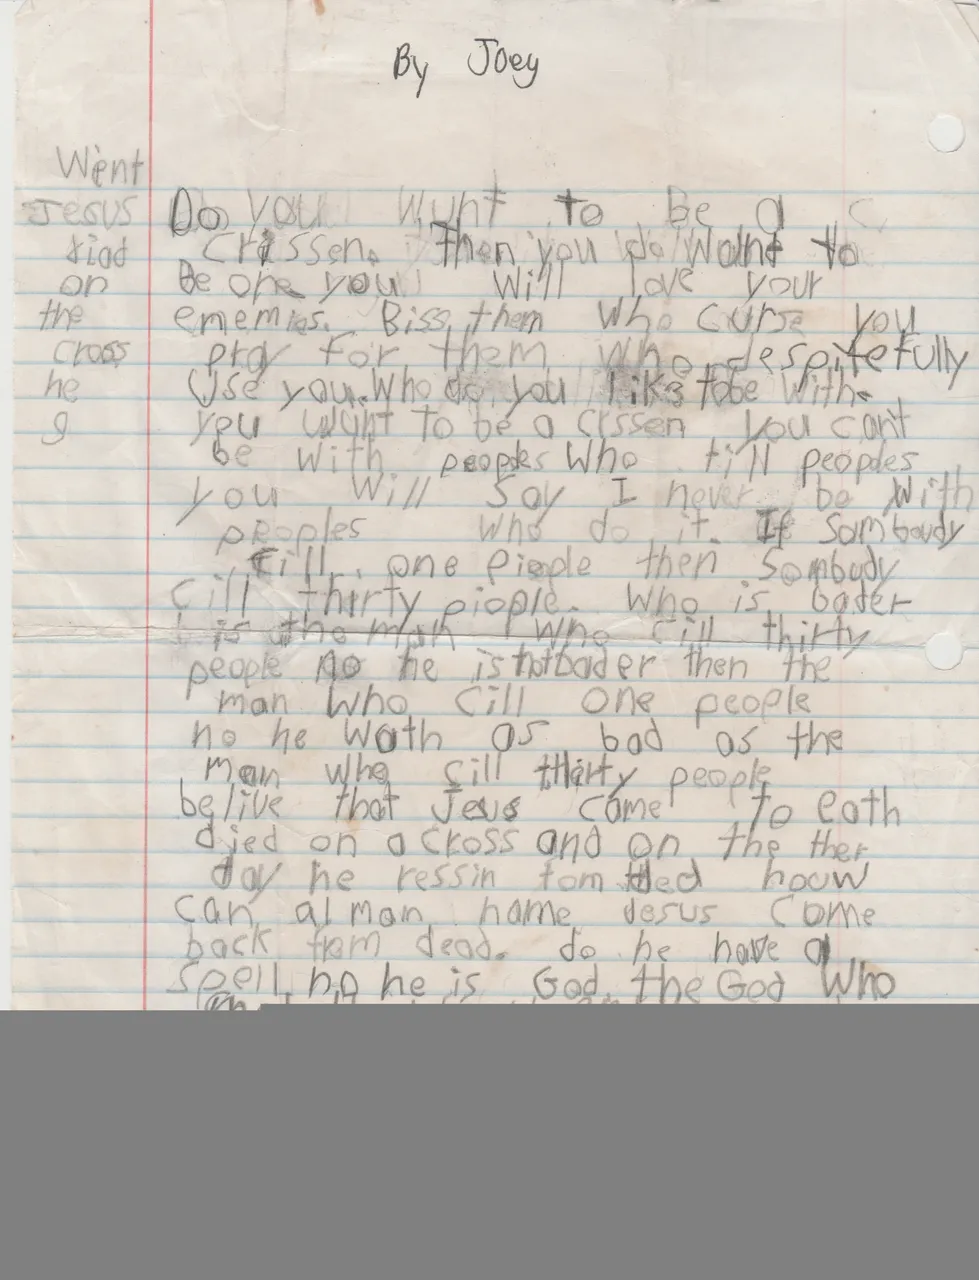 By Joey
Went
Jesus
diad
on
the
cross
he
g
Do you wunt to Be a
crissen. then you do want to
Be one you will love your
ememies. Biss them who curse you
pray for them who despitefully
Use you. Who do you like to be with.
you wunt to be a crissen you cant
be with peoples who till peoples
you will Say I never be with
peoples who do it. If Sombaudy
Cill one piople then Sombudy
Cill thirty piople. Who is bader
is the man who Cill thirty
people no he is not bader then the
man who Cill one people
no he wath as bad as the
man who Cill thirty people
belive that Jesus came to eath
died on a cross and on the ther
day he ressin fom ded houw
can a man name Jesus Come
back from dead. do he have a
Spell. no he is God. the God Who